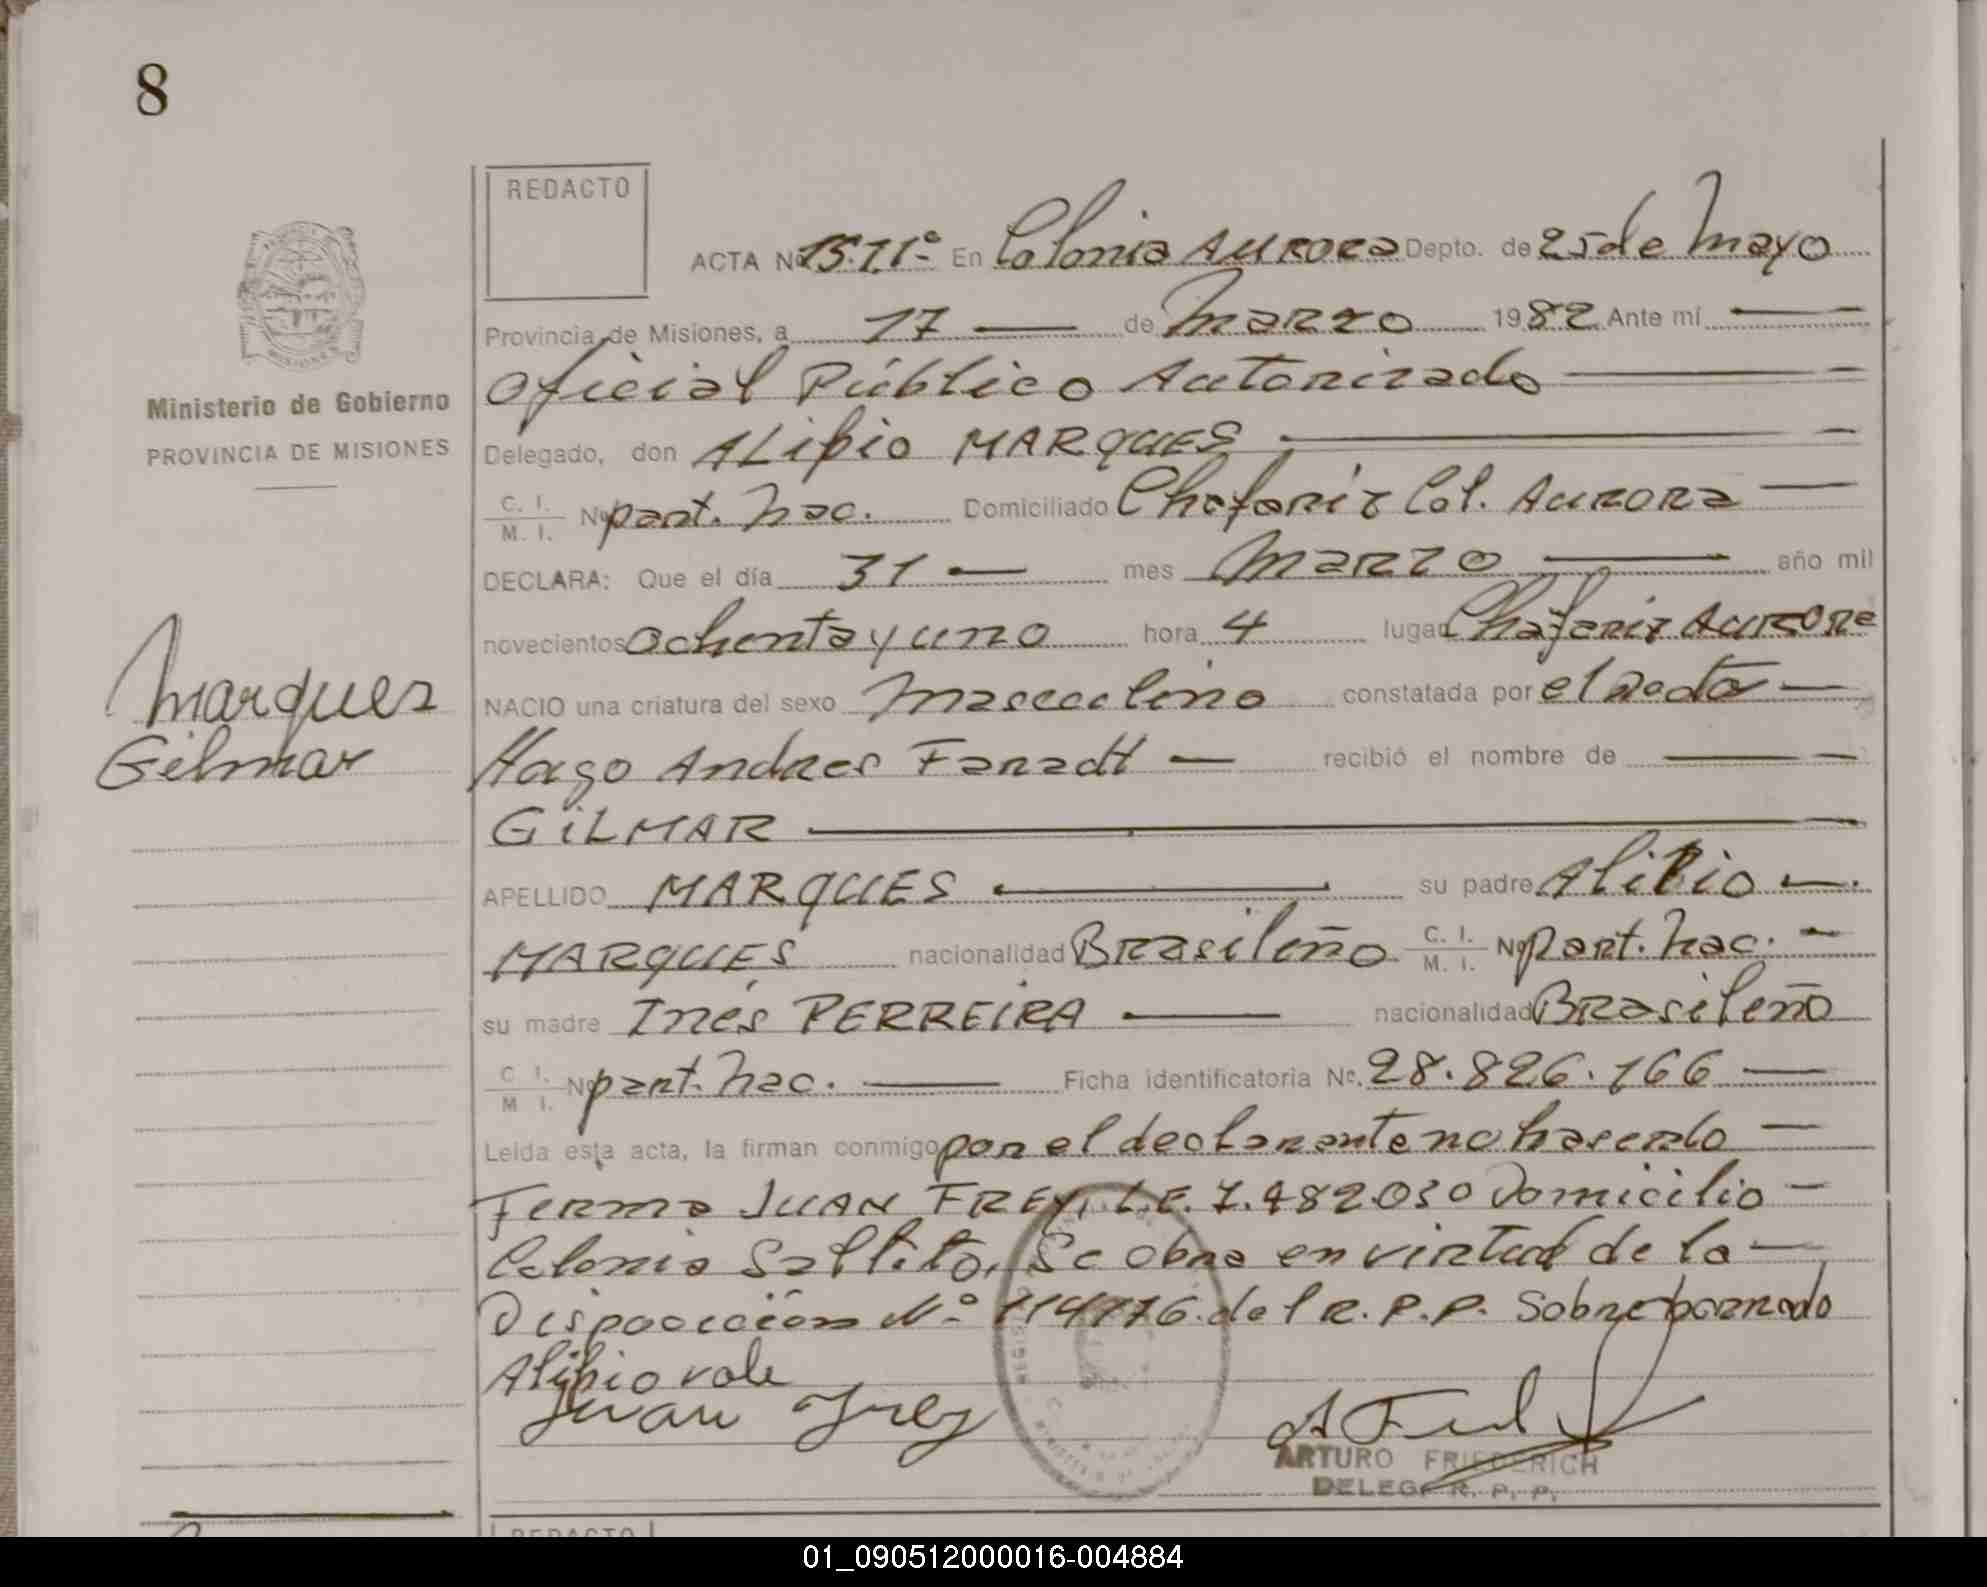 8
REDACTO
ACTA Nº 15.II.º En Colonia AURORA Depto. de 25 de Mayo
Provincia de Misiones, a 17 — de Marzo 1982 Ante mí —
Oficial Público Autorizado —
Ministerio de Gobierno
PROVINCIA DE MISIONES
Delegado, don ALipio MARQUES —
C. I. / M. I. Nº part. nac. Domiciliado Chafariz Col. AURORA —
DECLARA: Que el día 31 — mes Marzo — año mil
novecientos ochenta y uno hora 4 lugar Chafariz AURORA
Marques
Gilmar
NACIO una criatura del sexo Masculino constatada por el —
Hugo Andres — recibió el nombre de —
GiLMAR —
APELLIDO MARQUES — su padre Alipio —
MARQUES nacionalidad Brasileño C. I. / M. I. Nº part. nac. —
su madre Inés PERREiRA — nacionalidad Brasileño
C I. / M I. Nº part. nac. — Ficha identificatoria Nº. 28.826.166 —
Leida esta acta, la firman conmigo por el declarante no hacerlo —
Firma JUAN FREY, L.E. 7.482030 Domicilio —
Colonia Saltito, Se obra en virtud de la —
Disposición Nº 114776 del R.P.P. Sobreborrado
Alipio vale
Juan Frey
ARTURO FRIEDERICH
DELEG. R. P. P.
REDACTO
01_090512000016-004884